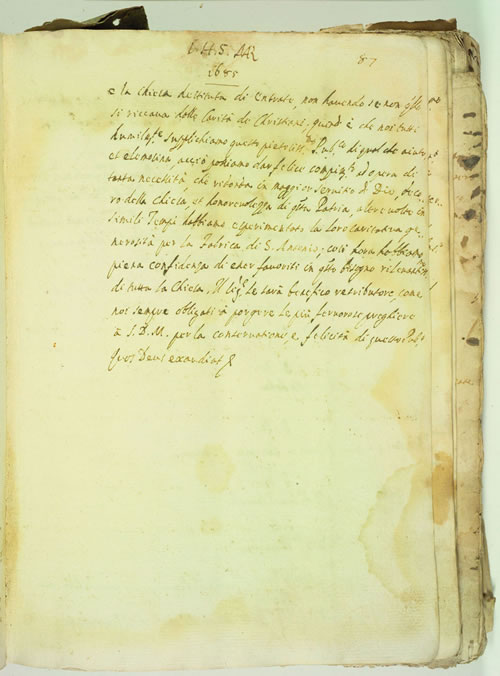 I. H. S. MR
87
1685
e la chiesa destituta di entrate, non havendo se non q̃llo
si riceava dalle Carità de Christiani, quind' è che noi tutti
humilm.e supplichiamo questo pietosiss.mo Pub.co di qualche aiuto
et elemosina acciò possiamo dar felice compim.to ad opera di
tanta necessità, che ritorna in maggior servitio di Dio, decoro
ro della chiesa et honorevolezza di q̃sta Patria, altre volte in
simili Tempi habbiamo esperimentato la loro caritativa ge-
nerosità per la Fabrica di S. Antonio; così hora habbiamo
piena confidenza di esser favoriti in q̃sto bisogno
di tutta la Chiesa, Il Sig.r le sarà benefico retributore, come
noi sempre obligati à porgerre le più fervorose preghiere
à S. D. M. per la conservatione e felicità di questo Pub.co
Quos Deus exaudiat